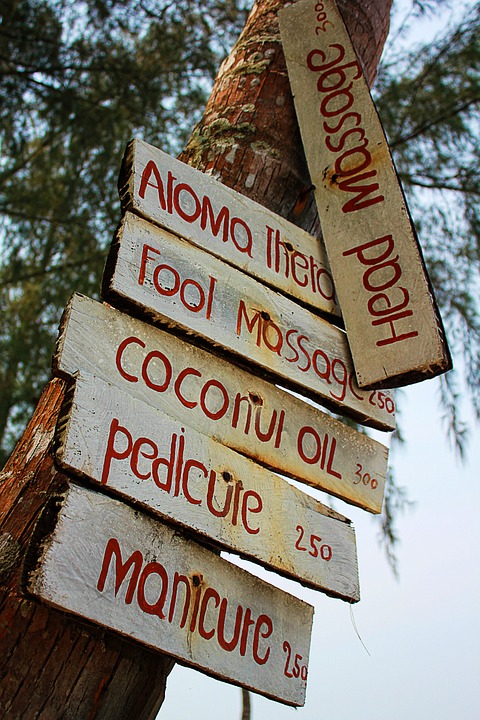 Head Massage 300
Aroma Thera
Foot Massage 250
coconut OIL 300
pedicure 250
Manicure 250